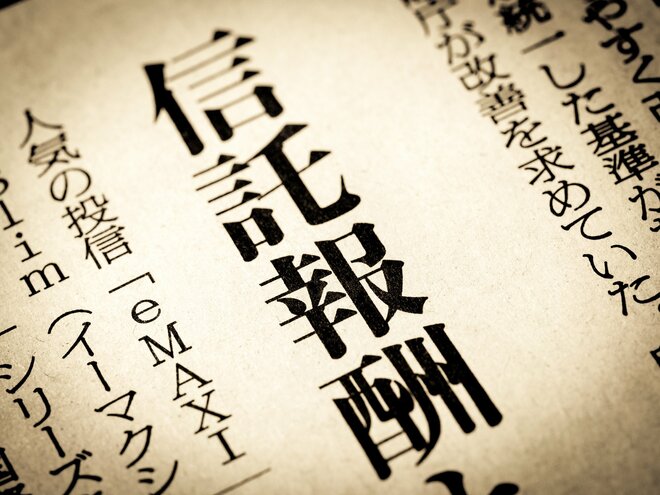 やすく
統一した基準が
序が改善を求めていた
信託報酬
人気の投信「eMAXI
slim（イーマクシ
シリーズ